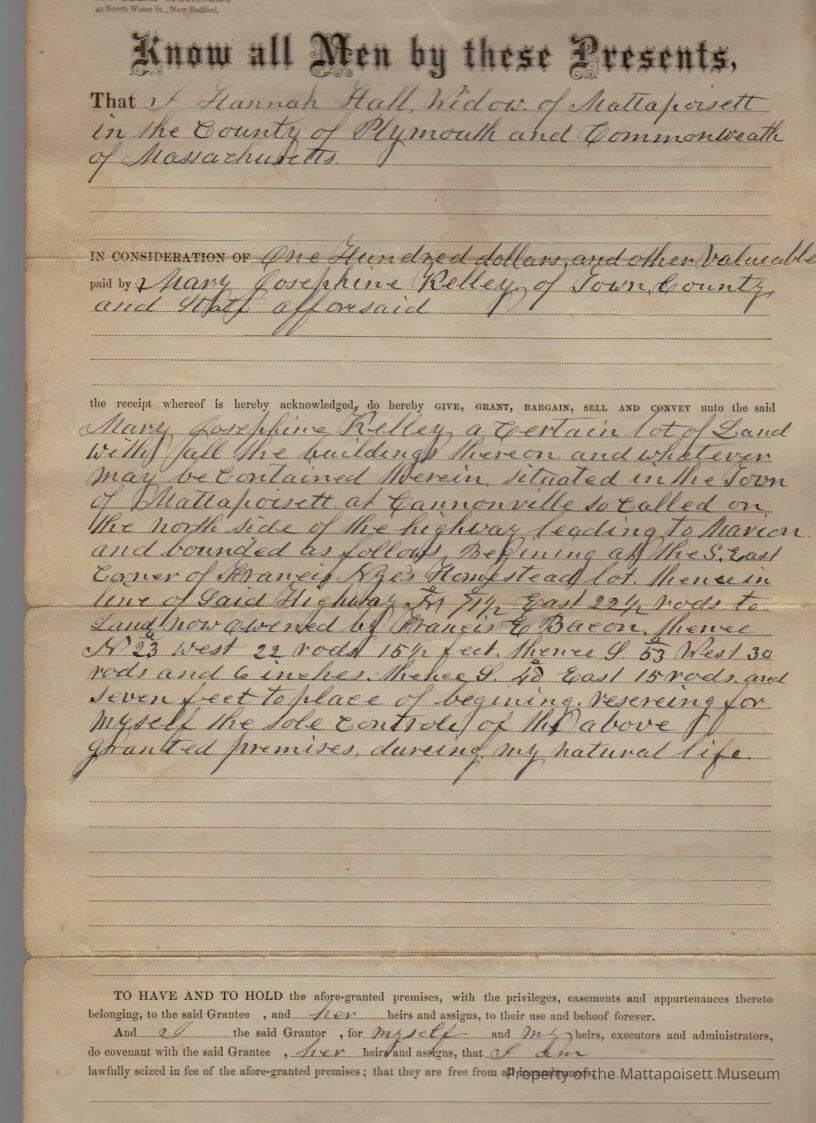 49 North Water St., New Bedford.
Know all Men by these Presents,
That I Hannah Hall, Widow of Mattapoisett
in the County of Plymouth and Commonweath
of Massachusetts.
IN CONSIDERATION OF One Hundred dollars, and other Valueable
paid by Mary Josephine Kelley, of Town, County,
and State afforesaid
the receipt whereof is hereby acknowledged, do hereby GIVE, GRANT, BARGAIN, SELL AND CONVEY unto the said
Mary Josephine Kelley, a Certain lot of Land
with all the buildings thereon and whatever
may be Contained therein, situated in the Town
of Mattapoisett at Cannonville so Called on
the north side of the highway leading to Marion
and bounded as follows, Begining at the S. East
Corner of Francis Nye's Homestead lot. thence in
line of Said Highway N 71½ East 22½ rods to
Land now owened by Francis E Bacon, thence
N 23° West 22 rods 15½ feet. thence S. 53° West 30
rods and 6 inches. thence S. 40° East 15 rods and
seven feet to place of begining. resereing for
myself the sole Controle of the above
granted premises, dureing my natural life.
TO HAVE AND TO HOLD the afore-granted premises, with the privileges, easements and appurtenances thereto
belonging, to the said Grantee , and her heirs and assigns, to their use and behoof forever.
And I the said Grantor , for myself and my heirs, executors and administrators,
do covenant with the said Grantee , her heirs and assigns, that I am
lawfully seized in fee of the afore-granted premises ; that they are free from all incumbrances,
Property of the Mattapoisett Museum